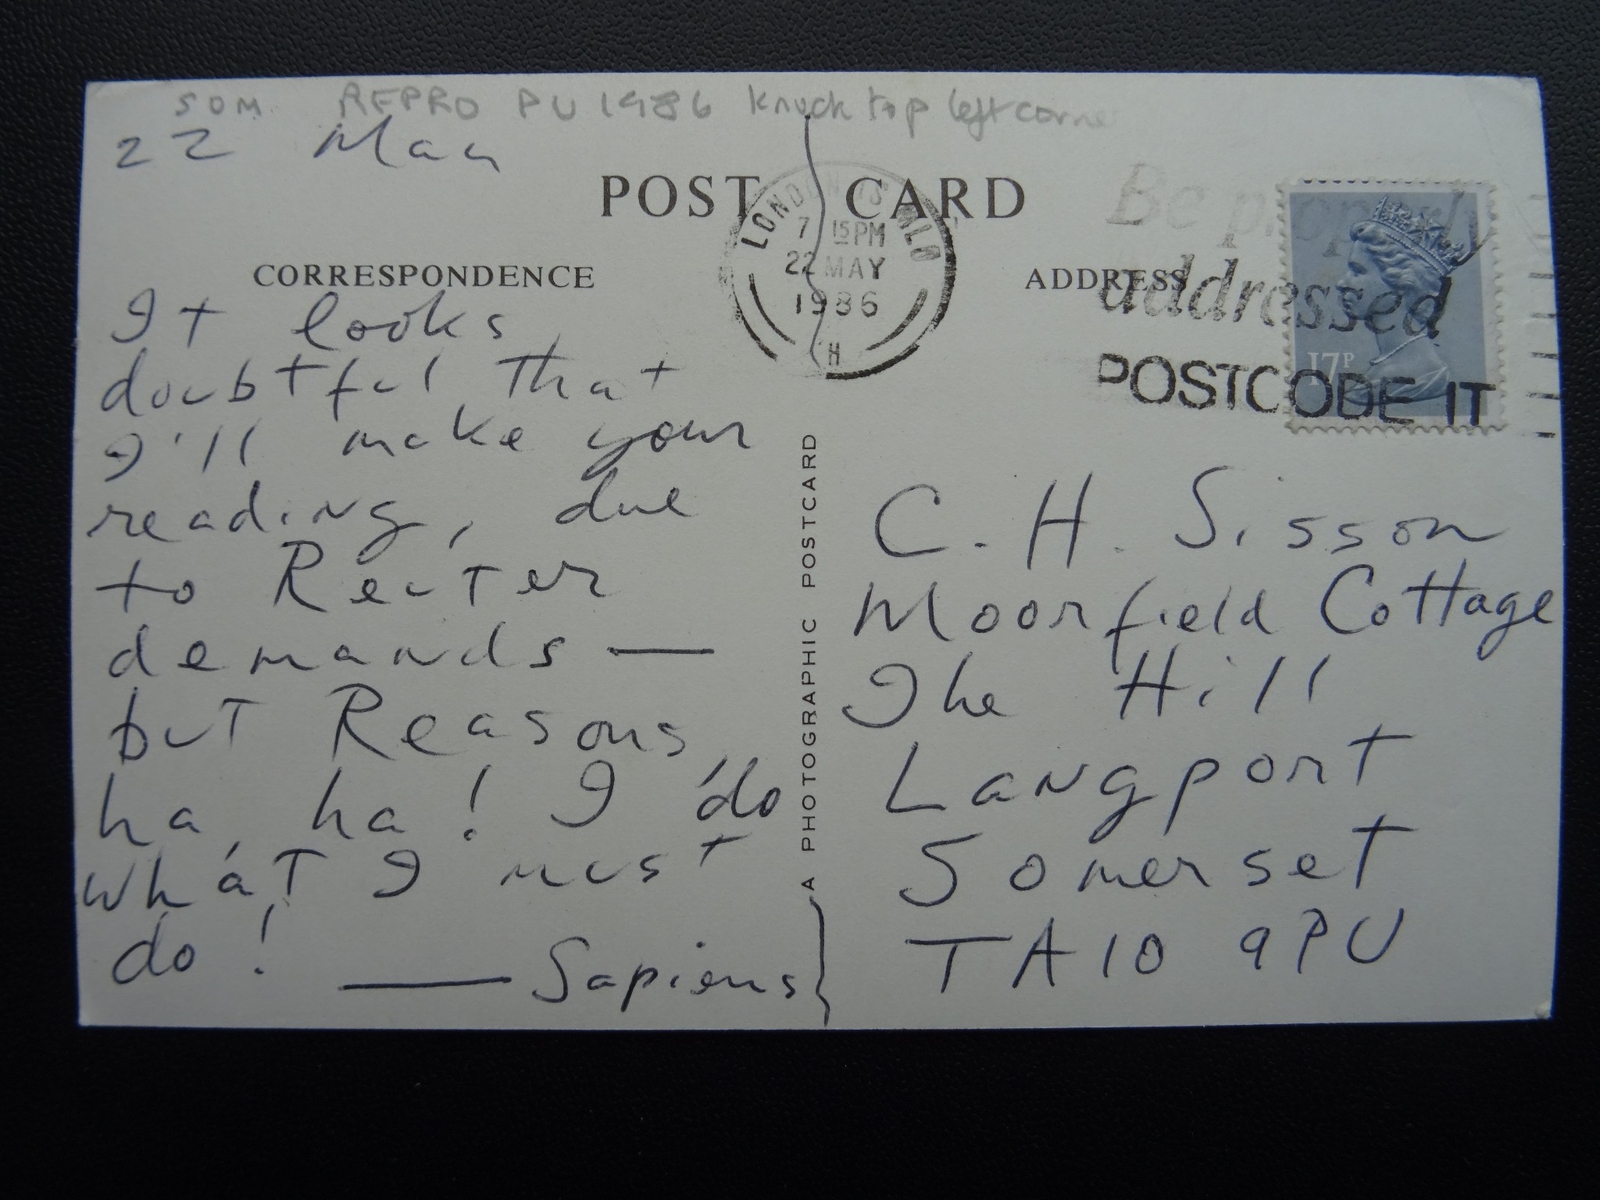 SOM REPRO PU 1986 knock top left corne
22 May
POST CARD
LONDON
7 15PM
22 MAY
1986
H
Be properly
addressed
POSTCODE IT
17P
CORRESPONDENCE
It looks
doubtful that
I'll make your
reading, due
to Reuter
demands —
but Reasons,
ha, ha! I do
what I must
do!
— Sapiens
A PHOTOGRAPHIC POSTCARD
ADDRESS
C. H. Sisson
Moorfield Cottage
The Hill
Langport
Somerset
TA10 9PU